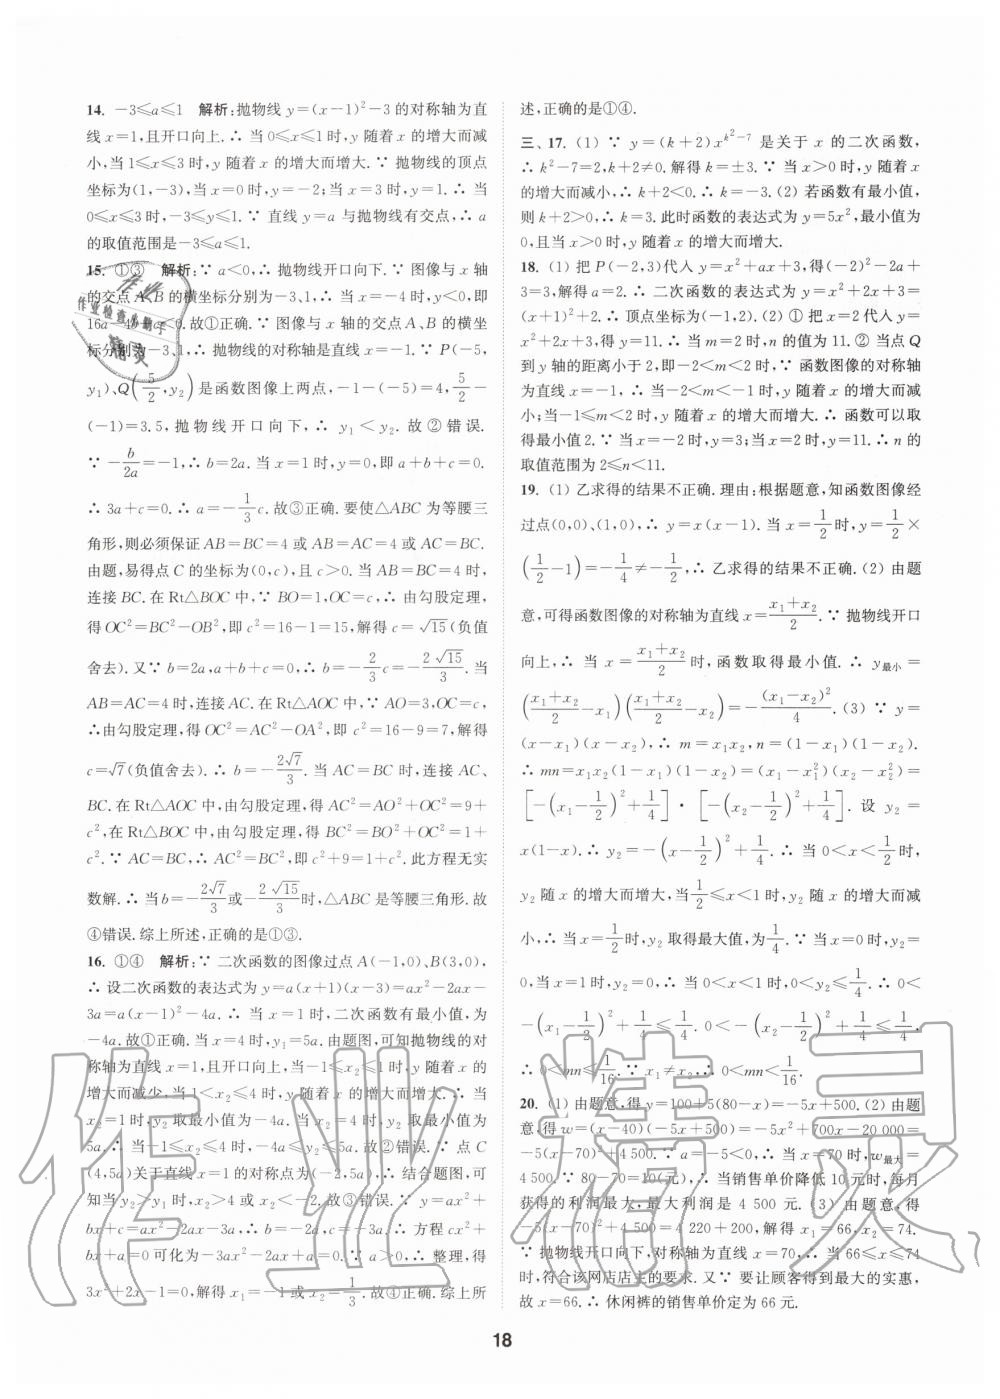 14. －3≤a≤1　解析:抛物线 y＝(x－1)²－3 的对称轴为直
线 x＝1,且开口向上.∴ 当 0≤x≤1 时,y 随着 x 的增大而减
小,当 1≤x≤3 时,y 随着 x 的增大而增大.∵ 抛物线的顶点
坐标为(1,－3),当 x＝0 时,y＝－2;当 x＝3 时,y＝1.∴ 当
0≤x≤3 时,－3≤y≤1.∵ 直线 y＝a 与抛物线有交点,∴ a
的取值范围是－3≤a≤1.
15. ①③　解析:∵ a＜0,∴ 抛物线开口向下.∵ 图像与 x 轴
的交点 A、B 的横坐标分别为－3、1,∴ 当 x＝－4 时,y＜0,即
16a－4b＋c＜0.故①正确.∵ 图像与 x 轴的交点 A、B 的横坐
标分别为－3、1,∴ 抛物线的对称轴是直线 x＝－1.∵ P(－5,
y₁)、Q(5/2,y₂)是函数图像上两点,－1－(－5)＝4,5/2－
(－1)＝3.5,抛物线开口向下,∴ y₁＜y₂.故②错误.
∵ －b/2a＝－1,∴ b＝2a.当 x＝1 时,y＝0,即 a＋b＋c＝0.
∴ 3a＋c＝0.∴ a＝－1/3c.故③正确.要使△ABC 为等腰三
角形,则必须保证 AB＝BC＝4 或 AB＝AC＝4 或 AC＝BC.
由题,易得点 C 的坐标为(0,c),且 c＞0.当 AB＝BC＝4 时,
连接 BC.在 Rt△BOC 中,∵ BO＝1,OC＝c,∴ 由勾股定理,
得 OC²＝BC²－OB²,即 c²＝16－1＝15,解得 c＝√15(负值
舍去).又∵ b＝2a,a＋b＋c＝0,∴ b＝－2/3c＝－2√15/3.当
AB＝AC＝4 时,连接 AC.在 Rt△AOC 中,∵ AO＝3,OC＝c,
∴由勾股定理,得 OC²＝AC²－OA²,即 c²＝16－9＝7,解得
c＝√7(负值舍去).∴ b＝－2√7/3.当 AC＝BC 时,连接 AC、
BC.在 Rt△AOC 中,由勾股定理,得 AC²＝AO²＋OC²＝9＋
c²,在 Rt△BOC 中,由勾股定理,得 BC²＝BO²＋OC²＝1＋
c².∵ AC＝BC,∴ AC²＝BC²,即 c²＋9＝1＋c².此方程无实
数解.∴ 当 b＝－2√7/3或－2√15/3时,△ABC 是等腰三角形.故
④错误.综上所述,正确的是①③.
16. ①④　解析:∵ 二次函数的图像过点 A(－1,0)、B(3,0),
∴ 设二次函数的表达式为 y＝a(x＋1)(x－3)＝ax²－2ax－
3a＝a(x－1)²－4a.∴ 当 x＝1 时,二次函数有最小值,为
－4a.故①正确.当 x＝4 时,y₁＝5a.由题图,可知抛物线的对
称轴为直线 x＝1,且开口向上,∴ 当－1≤x₂≤1 时,y₂ 随着 x 的
增大而减少,当 1＜x₂≤4 时,y₂ 随着 x 的增大而增大.∴ 当
x₂＝1 时,y₂ 取最小值为－4a.当 x₂＝4 时,y₂ 取最大值为
5a.∴ 当－1≤x₂≤4 时,－4a≤y₂≤5a.故②错误.∵ 点 C
(4,5a)关于直线 x＝1 的对称点为(－2,5a),∴ 结合题图,可
知当 y₂＞y₁ 时,x₂＞4 或 x₂＜－2.故③错误.∵ y＝ax²＋
bx＋c＝ax²－2ax－3a,∴ b＝－2a,c＝－3a.∴ 方程 cx²＋
bx＋a＝0 可化为－3ax²－2ax＋a＝0.∵ a＞0,∴ 整理,得
3x²＋2x－1＝0.解得 x₁＝－1 或 x₂＝1/3.故④正确.综上所
述,正确的是①④.
三、17. (1) ∵ y＝(k＋2)x^(k²－7) 是关于 x 的二次函数,
∴ k²－7＝2,k＋2≠0.解得 k＝±3.∵ 当 x＞0 时,y 随着 x
的增大而减小,∴ k＋2＜0.∴ k＝－3. (2) 若函数有最小值,
则 k＋2＞0,∴ k＝3.此时函数的表达式为 y＝5x²,最小值为
0,且当 x＞0 时,y 随着 x 的增大而增大.
18. (1) 把 P(－2,3)代入 y＝x²＋ax＋3,得(－2)²－2a＋
3＝3,解得 a＝2.∴ 二次函数的表达式为 y＝x²＋2x＋3＝
(x＋1)²＋2.∴ 顶点坐标为(－1,2). (2) ① 把 x＝2 代入 y＝
x²＋2x＋3,得 y＝11.∴ 当 m＝2 时,n 的值为 11. ② 当点 Q
到 y 轴的距离小于 2,即－2＜m＜2 时,∵ 函数图像的对称轴
为直线 x＝－1,∴ 当－2＜m＜－1 时,y 随着 x 的增大而减
小;当－1≤m＜2 时,y 随着 x 的增大而增大.∴ 函数可以取
得最小值 2.∵ 当 x＝－2 时,y＝3;当 x＝2 时,y＝11.∴ n 的
取值范围为 2≤n＜11.
19. (1) 乙求得的结果不正确.理由:根据题意,知函数图像经
过点(0,0)、(1,0),∴ y＝x(x－1).当 x＝1/2时,y＝1/2×
(1/2－1)＝－1/4≠－1/2,∴ 乙求得的结果不正确. (2) 由题
意,可得函数图像的对称轴为直线 x＝(x₁＋x₂)/2.∵ 抛物线开口
向上,∴ 当 x＝(x₁＋x₂)/2时,函数取得最小值.∴ y最小＝
((x₁＋x₂)/2－x₁)((x₁＋x₂)/2－x₂)＝－(x₁－x₂)²/4. (3) ∵ y＝
(x－x₁)(x－x₂),∴ m＝x₁x₂,n＝(1－x₁)(1－x₂).
∴ mn＝x₁x₂(1－x₁)(1－x₂)＝(x₁－x₁²)(x₂－x₂²)＝
[－(x₁－1/2)²＋1/4]·[－(x₂－1/2)²＋1/4].设 y₂＝
x(1－x).∴ y₂＝－(x－1/2)²＋1/4.∴ 当 0＜x＜1/2时,
y₂ 随 x 的增大而增大,当1/2≤x＜1 时,y₂ 随 x 的增大而减
小,∴ 当 x＝1/2时,y₂ 取得最大值,为1/4.∵ 当 x＝0 时,y₂＝
0,当 x＝1 时,y₂＝0,∴ 当 0＜x＜1 时,0＜y₂≤1/4.∴ 0＜
－(x₁－1/2)²＋1/4≤1/4,0＜－(x₂－1/2)²＋1/4≤1/4.
∴ 0＜mn≤1/16.∵ x₁≠x₂,∴ 0＜mn＜1/16.
20. (1) 由题意,得 y＝100＋5(80－x)＝－5x＋500. (2) 由题
意,得 w＝(x－40)(－5x＋500)＝－5x²＋700x－20 000＝
－5(x－70)²＋4 500.∵ a＝－5＜0,∴ 当 x＝70 时,w最大＝
4 500.∵ 80－70＝10(元),∴ 当销售单价降低 10 元时,每月
获得的利润最大,最大利润是 4 500 元. (3) 由题意,得
－5(x－70)²＋4 500＝4 220＋200,解得 x₁＝66,x₂＝74.
∵ 抛物线开口向下,对称轴为直线 x＝70,∴ 当 66≤x≤74
时,符合该网店店主的要求.又∵ 要让顾客得到最大的实惠,
故 x＝66.∴ 休闲裤的销售单价定为 66 元.
18
作业
作业检查小助手
精灵
作业精灵